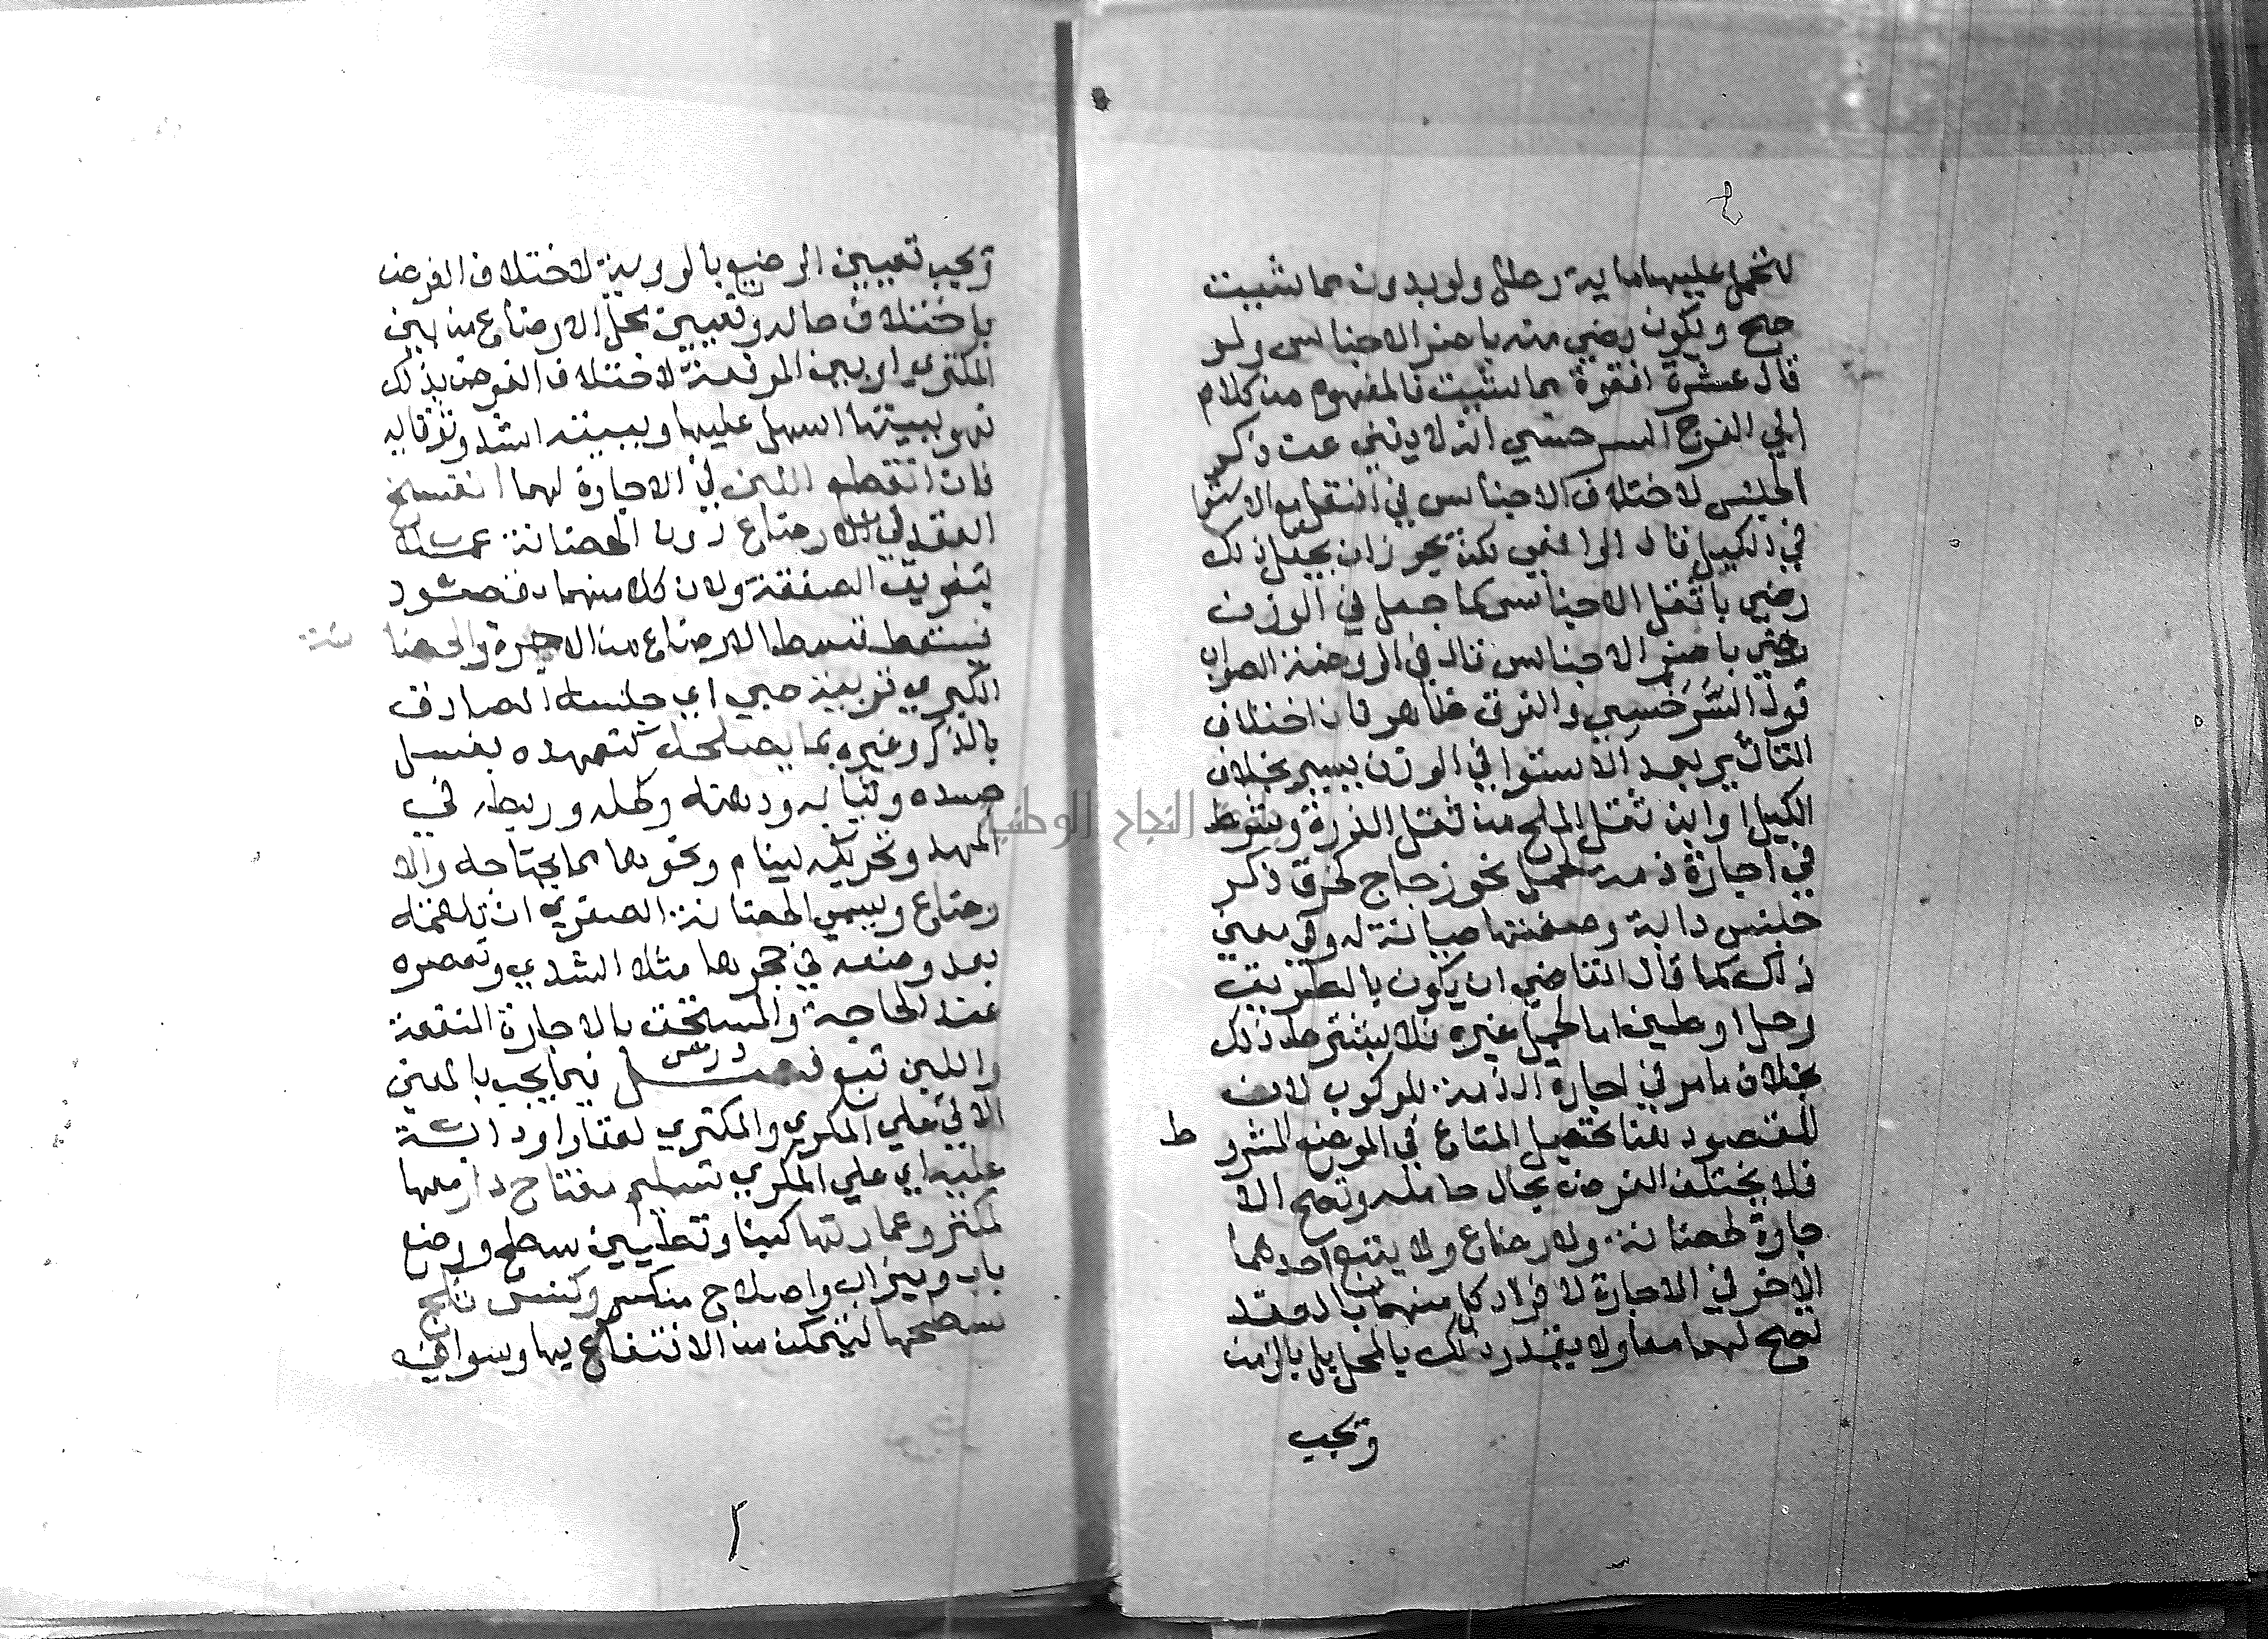 لتحمل عليها ماية رطل ولو بدون مما شيت
صح ويكون رضي منه باضر الاجناس ولو
قال عشرة اقفزة مما شيت فالمفهوم من كلام
ابي الفرج السرخسي انه لا يغني عن ذكر
الجنس لاختلاف الاجناس في الثقل مع الاستوا
في الكيل قال الرافعي لكن يجوز ان يجعل ذلك
رضي باثقل الاجناس كما جعل في الوزن
رضي باضر الاجناس قال في الروضة الصواب
قول السرخسي والفرق ظاهر فان اختلاف
التاثير بعد الاستوا في الوزن يسير بخلاف
الكيل واين ثقل الملح من ثقل الذرة وشرط
في اجارة ذمة لحمل نحو زجاج كخزف ذكر
جنس دابة وصفتها صيانة له وفي معني
ذلك كما قال القاضي ان يكون بالطريق
وحل او طين اما لحمل غيره فلا يشترط ذلك
بخلاف ما مر في اجارة الذمة للركوب لان
المقصود هنا تحصيل المتاع في الموضع المشرو ط
فلا يختلف الغرض بحال حامله وتصح الا
جارة لحضانة ولارضاع ولا يتبع احدهما
الاخر في الاجارة لافراد كل منهما بالعقد
تصح لهما معا ولا يقدر ذلك بالمحل بل بالزمن
وتجب
وتجب تعيين الرضيع بالروية لاختلاف الغرض
باختلاف حاله وتعيين محل الارضاع من بين
المكتري او بين المرضعة لاختلاف الغرض بذلك
فهو ببيتها اسهل عليها وببيته اشد وثوقا به
فان انقطع اللبن في الاجارة لهما انفسخ
العقد في الارضاع دون الحضانة عملا
بتفريق الصفقة ولان كلا منهما مقصود
فيسقط قسط الارضاع من الاجرة والحضا نة
الكبري تربية صبي اي جنسه الصادق
بالذكر وغيره بما يصلحه كتعهده بغسل
جسده وثيابه ودهنه وكحله وربطه في
المهد وتحريكه لينام ونحوها مما يحتاجه والا
رضاع ويسمي الحضانة الصغري ان تلقمه
بعد وضعه في حجرها مثلا الثدي وتعصره
عند الحاجة والمستحق بالاجارة المنفعة
واللبن تبع فصل فيما يجب بالمعني
الاتي علي المكري والمكتري لعقار او دابة
عليه اي علي المكري تسليم مفتاح دار معها
لمكتر وعمارتها كبنا وتطيين سطح ووضع
باب وميزاب واصلاح منكسر وكنس ثلج
سطحها ليتمكن من الانتفاع بها وسوا في